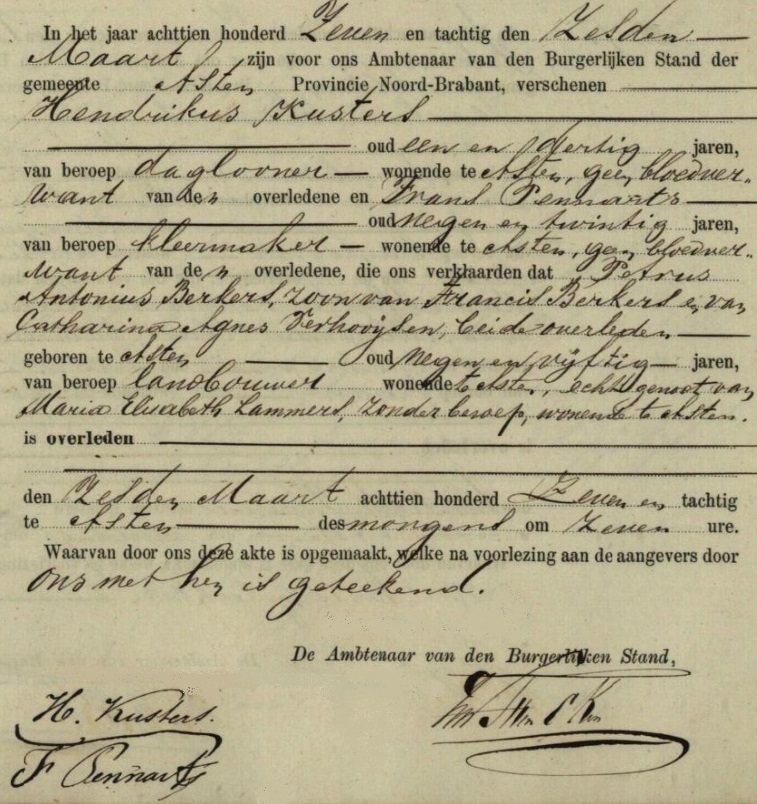 In het jaar achttien honderd Zeven en tachtig den Zesden
Maart zijn voor ons Ambtenaar van den Burgerlijken Stand der
gemeente Asten Provincie Noord-Brabant, verschenen
Hendrikus Kusters
oud een en dertig jaren,
van beroep daglooner wonende te Asten, geen bloedver-
want van den overledene en Frans Pennarts
oud negen en twintig jaren,
van beroep kleermaker wonende te Asten, geen bloedver-
want van den overledene, die ons verklaarden dat Petrus
Antonius Berkers, zoon van Francis Berkers en van
Catharina Agnes Verhooijsen, beide overleden
geboren te Asten oud negen en vijftig jaren,
van beroep landbouwer wonende te Asten, echtgenoot van
Maria Elisabeth Lammers, zonder beroep, wonende te Asten.
is overleden
den Zesden Maart achttien honderd Zeven en tachtig
te Asten des morgens om Zeven ure.
Waarvan door ons deze akte is opgemaakt, welke na voorlezing aan de aangevers door
ons met hen is geteekend.
De Ambtenaar van den Burgerlijken Stand,
H. Kusters.
F Pennarts